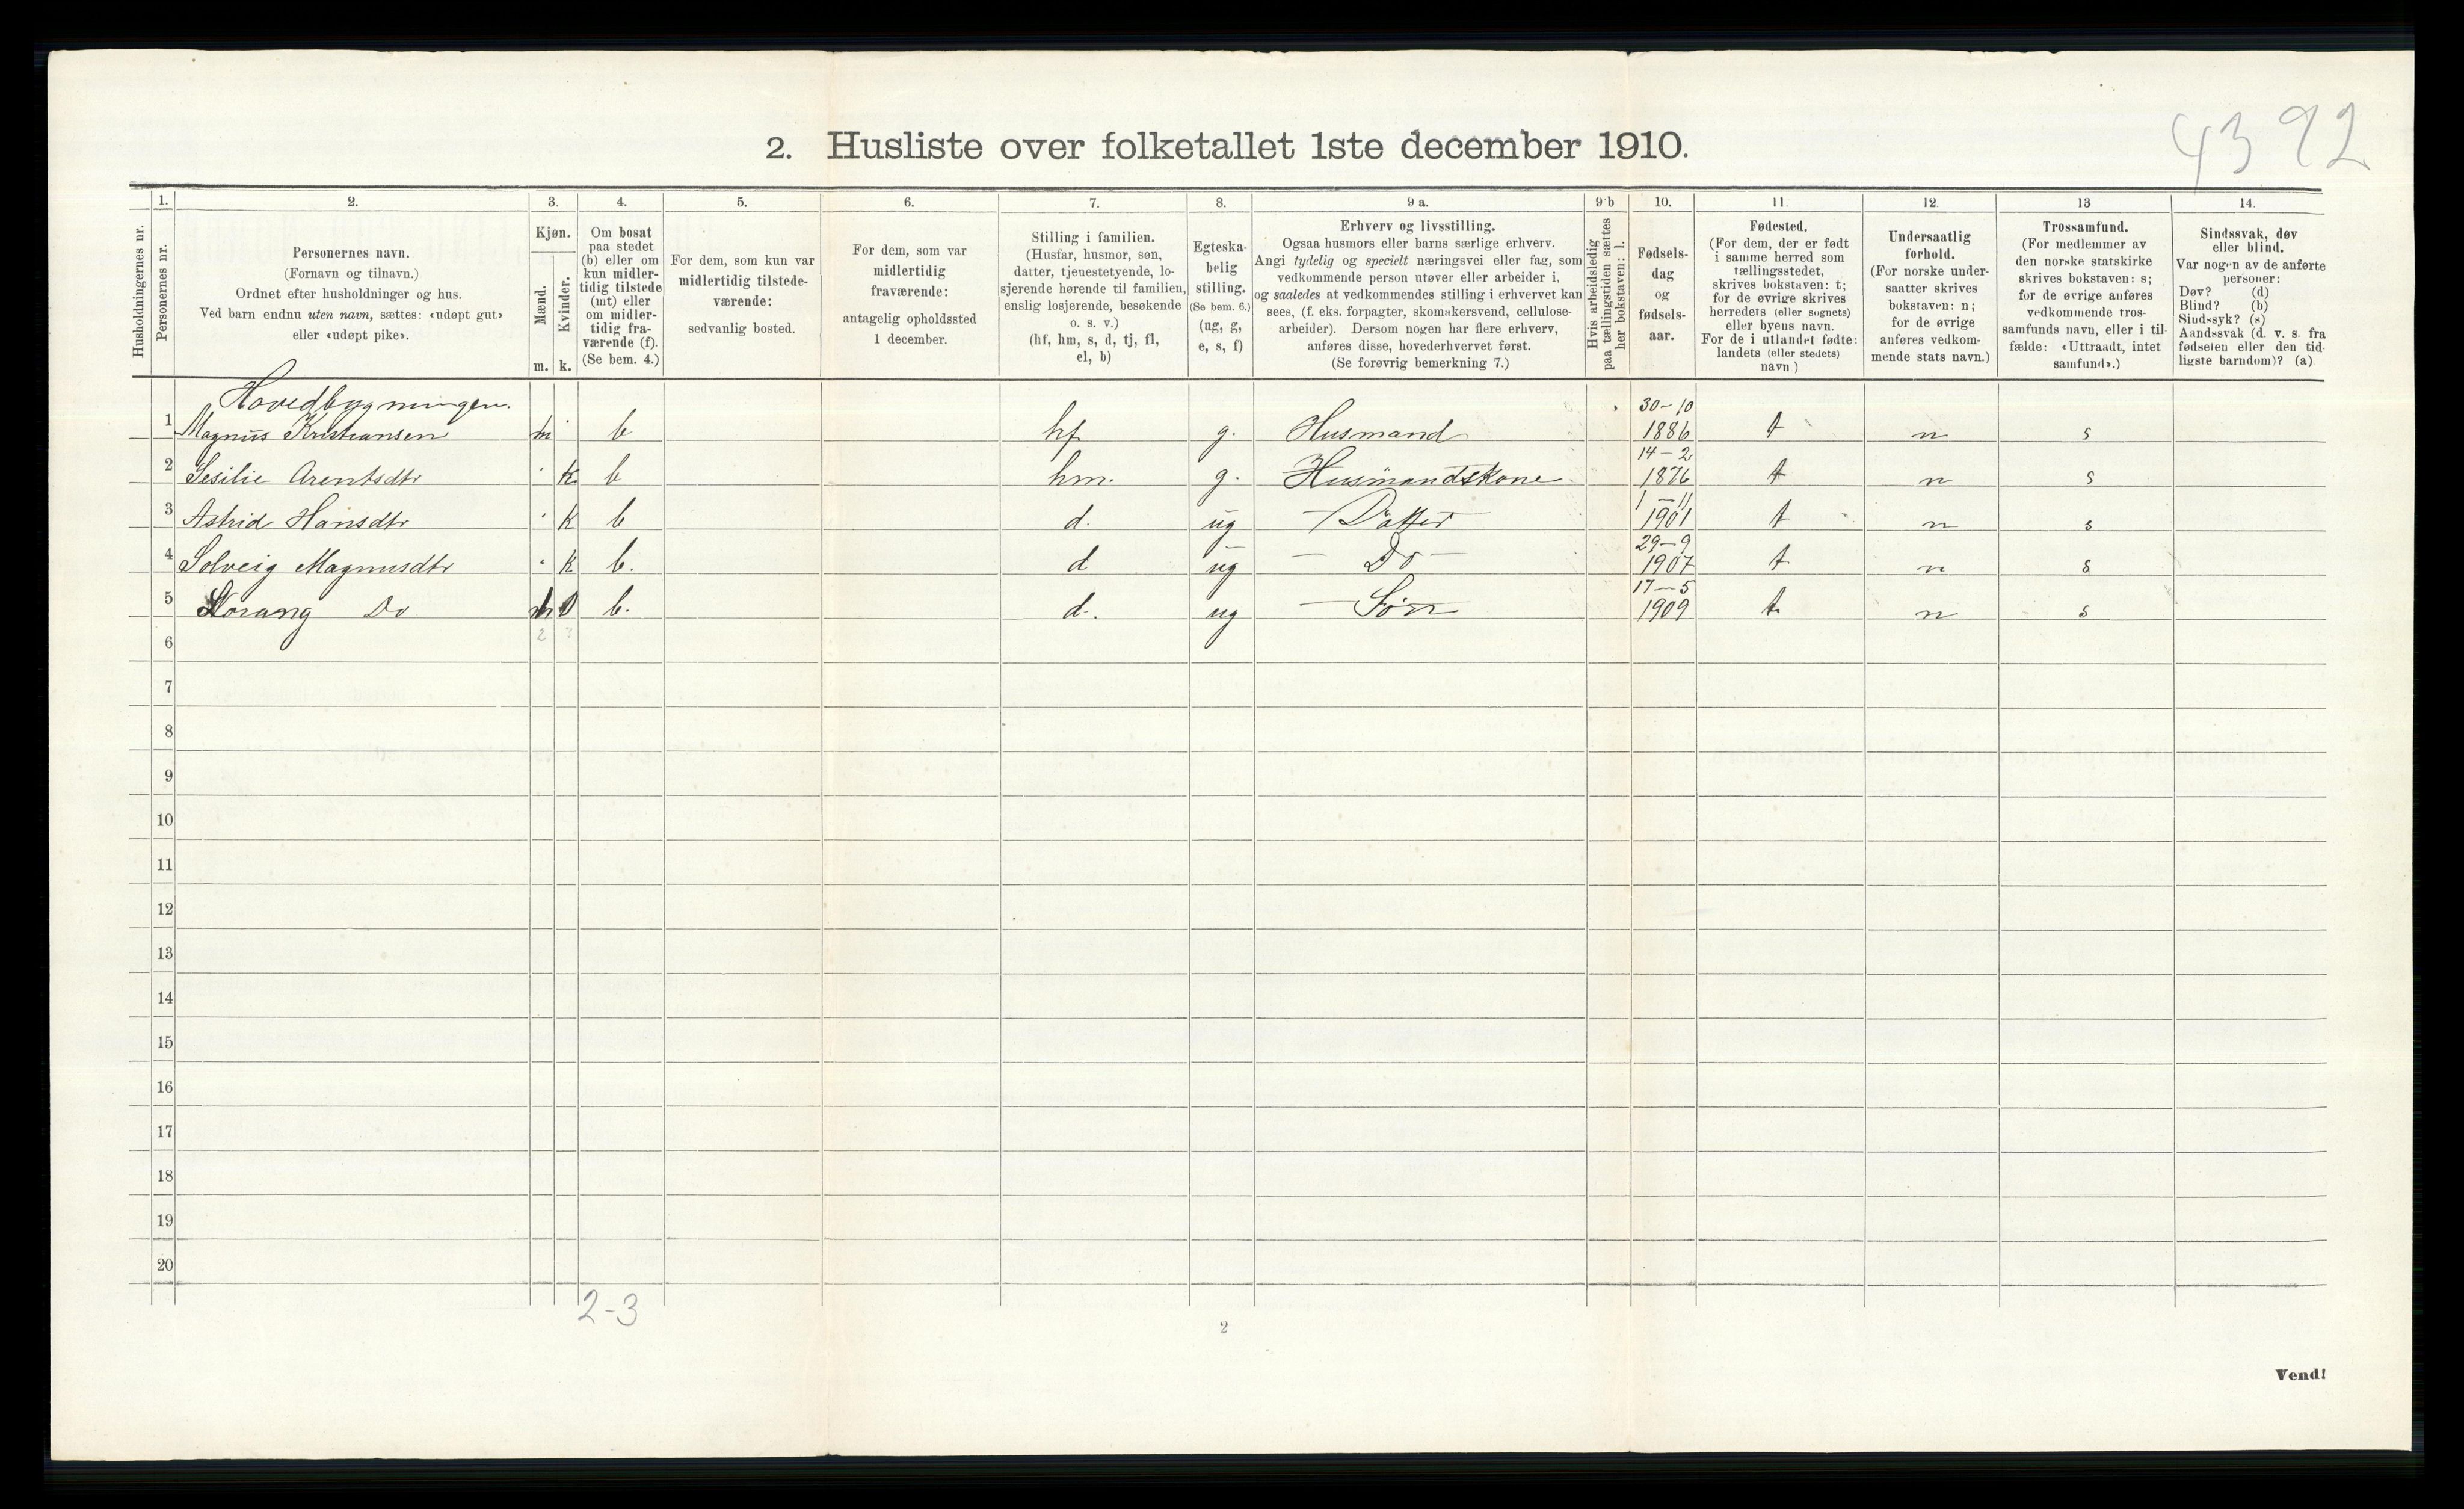 4392
2. Husliste over folketallet 1ste december 1910.
Husholdningernes nr.
1.
Personernes nr.
2.
Personernes navn.
(Fornavn og tilnavn.)
Ordnet efter husholdninger og hus.
Ved barn endnu uten navn, sættes: «udøpt gut»
eller «udøpt pike».
3.
Kjøn.
Mænd.
Kvinder.
m. k.
4.
Om bosat
paa stedet
(b) eller om
kun midler-
tidig tilstede
(mt) eller
om midler-
tidig fra-
værende (f).
(Se bem. 4.)
5.
For dem, som kun var
midlertidig tilstede-
værende:
sedvanlig bosted.
6.
For dem, som var
midlertidig
fraværende:
antagelig opholdssted
1 december.
7.
Stilling i familien.
(Husfar, husmor, søn,
datter, tjenestetyende, lo-
sjerende hørende til familien,
enslig losjerende, besøkende
o. s. v.)
(hf, hm, s, d, tj, fl,
el, b)
8.
Egteska-
belig
stilling.
(Se bem. 6.)
(ug, g,
e, s, f)
9 a.
Erhverv og livsstilling.
Ogsaa husmors eller barns særlige erhverv.
Angi tydelig og specielt næringsvei eller fag, som
vedkommende person utøver eller arbeider i,
og saaledes at vedkommendes stilling i erhvervet kan
sees, (f. eks. forpagter, skomakersvend, cellulose-
arbeider). Dersom nogen har flere erhverv,
anføres disse, hovederhvervet først.
(Se forøvrig bemerkning 7.)
9 b
Hvis arbeidsledig
paa tællingstiden sættes
her bokstaven: l.
10.
Fødsels-
dag
og
fødsels-
aar.
11.
Fødested.
(For dem, der er født
i samme herred som
tællingsstedet,
skrives bokstaven: t;
for de øvrige skrives
herredets (eller sognets)
eller byens navn.
For de i utlandet fødte:
landets (eller stedets)
navn )
12.
Undersaatlig
forhold.
(For norske under-
saatter skrives
bokstaven: n;
for de øvrige
anføres vedkom-
mende stats navn.)
13
Trossamfund.
(For medlemmer av
den norske statskirke
skrives bokstaven: s;
for de øvrige anføres
vedkommende tros-
samfunds navn, eller i til-
fælde: «Uttraadt, intet
samfund».)
14.
Sindssvak, døv
eller blind.
Var nogen av de anførte
personer:
Døv? (d)
Blind? (b)
Sindssyk? (s)
Aandssvak (d. v. s. fra
fødselen eller den tid-
ligste barndom)? (a)
Hovedbygningen.
1 Magnus Kristiansen m b hf g. Husmand 30-10 1886 t n s
2 Sesilie Arentsdtr k b hm. g. Husmandskone 14-2 1876 t n s
3 Astrid Hansdtr k b d. ug Datter 1-11 1901 t n s
4 Solveig Magnusdtr k b. d ug Do 29-9 1907 t n s
5 Do m b. d. ug Søn 17-5 1909 t n s
2 3
6
7
8
9
10
11
12
13
14
15
16
17
18
19
20
2-3
2
Vend!